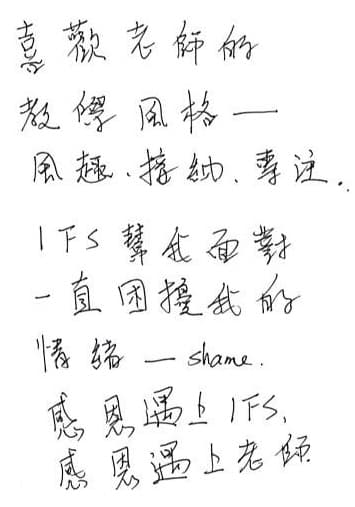 喜歡老師的
教學風格一
風趣、接納、專注.
IFS幫我面對
一直困擾我的
情緒—shame.
感恩遇上IFS,
感恩遇上老師